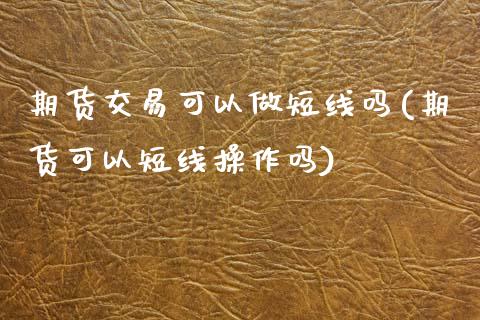 期货交易可以做短线吗(期
货可以短线操作吗)